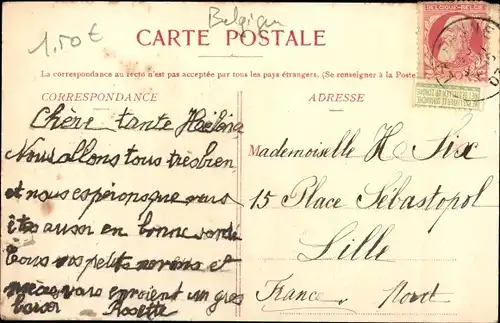 1.50 €
Belgique
CARTE POSTALE
La correspondance au recto n'est pas acceptée par tous les pays étrangers. (Se renseigner à la Poste
CORRESPONDANCE
ADRESSE
BELGIQUE
Chère tante Hélèna
Nous allons tous très bien
et nous espérons que vous
êtes aussi en bonne santé
Tous vos petits neveux et
nièces vous envoient un gros
baiser Rosette
Mademoiselle H Six
15 Place Sébastopol
Lille
France. Nord